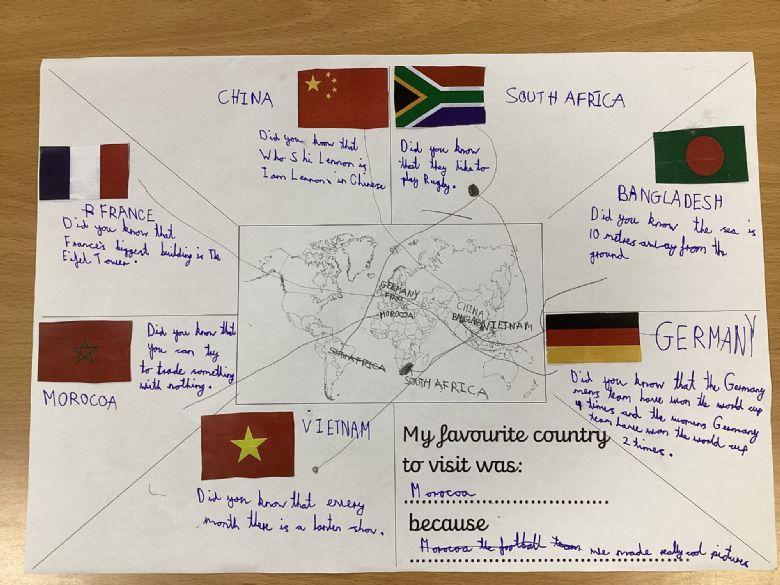 CHINA
Did you know that
Who Shi Lennon is
I am Lennon in Chinese
SOUTH AFRICA
Did you know
that they like to
play Rugby.
FRANCE
Did you know that
France's biggest building is The
Eifel Tower.
BANGLADESH
Did you know the sea is
10 metres away from the
ground
MOROCOA
Did you know that
you can try
to trade something
with nothing.
GERMANY
FRANCE
MOROCOA
CHINA
BANGLADESH
VIETNAM
SOUTH AFRICA
SOUTH AFRICA
GERMANY
Did you know that the Germany
mens team have won the world cup
4 times and the womens Germany
team have won the world cup
2 times.
VIETNAM
Did you know that every
month there is a lanten show.
My favourite country
to visit was:
Morocoa
because
Morocoa the football team we made really cool pictures